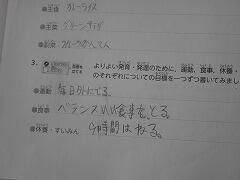 ●主食 カレーライス
●主菜 グリーンサラダ
●副菜 フルーツかんてん
3. よりよい発育・発達のために、運動、食事、休養・
のそれぞれについての目標を一つずつ書いてみまし
●運動 毎日外にでる。
●食事 バランスいい食事をとる。
●休養・すいみん 9時間はねる。